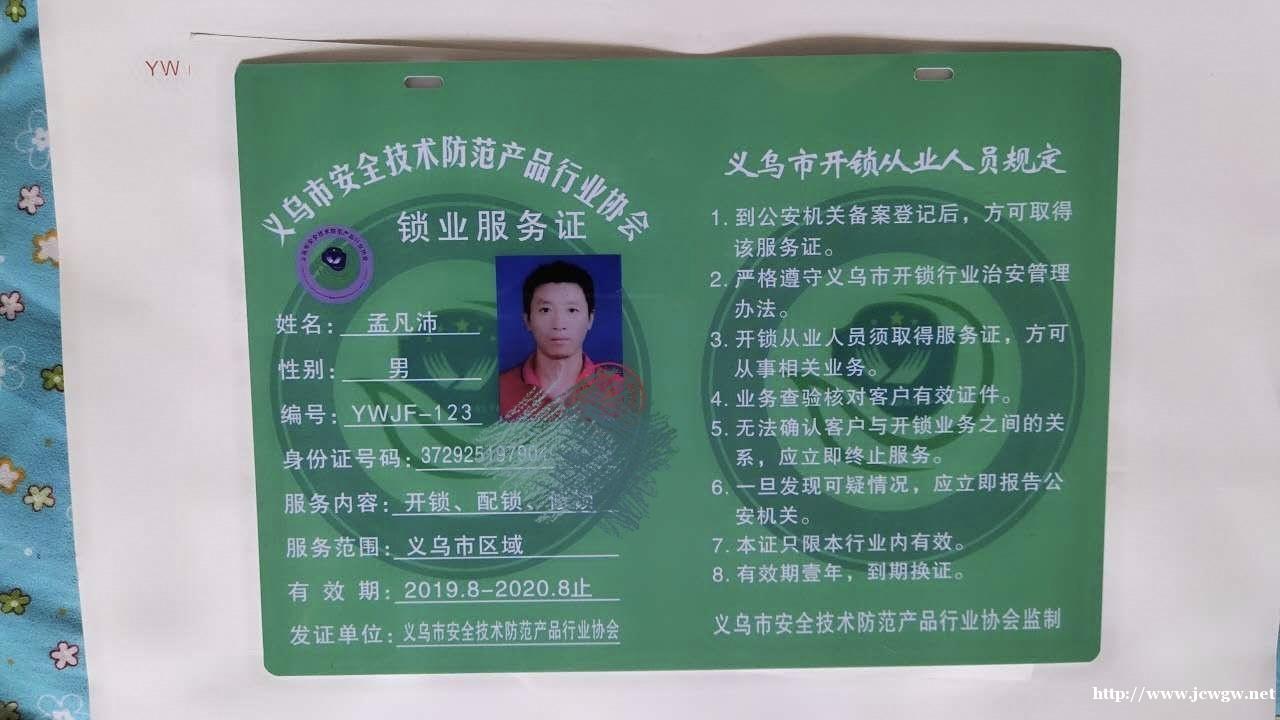 YW
义乌市安全技术防范产品行业协会
锁业服务证
姓名：孟凡沛
性别：男
编号：YWJF-123
身份证号码：
服务内容：开锁、配锁、
服务范围：义乌市区域
有 效 期：2019.8-2020.8止
发证单位：义乌市安全技术防范产品行业协会
义乌市开锁从业人员规定
1. 到公安机关备案登记后，方可取得
该服务证。
2. 严格遵守义乌市开锁行业治安管理
办法。
3. 开锁从业人员须取得服务证，方可
从事相关业务。
4. 业务查验核对客户有效证件。
5. 无法确认客户与开锁业务之间的关
系，应立即终止服务。
6. 一旦发现可疑情况，应立即报告公
安机关。
7. 本证只限本行业内有效。
8. 有效期壹年，到期换证。
义乌市安全技术防范产品行业协会监制
http://www.jcwgw.net